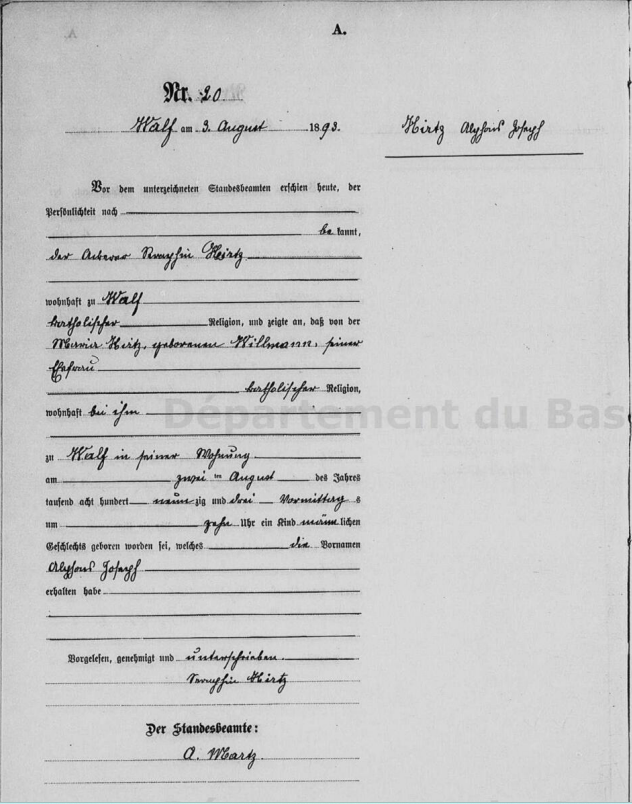 A.
Nr. 20
Walf am 3. August 1893.
Hirtz Alphons Joseph
Vor dem unterzeichneten Standesbeamten erschien heute, der
Persönlichkeit nach
be kannt,
der Ackerer Seraphin Hirtz
wohnhaft zu Walf
katholischer Religion, und zeigte an, daß von der
Maria Hirtz, geborenen Willmann, seiner
Ehefrau
katholischer Religion,
wohnhaft bei ihm
Département du Bas
zu Walf in seiner Wohnung
am zwei ten August des Jahres
tausend acht hundert neun zig und drei Vormittag s
um zehn Uhr ein Kind männ lichen
Geschlechts geboren worden sei, welches die Vornamen
Alphons Joseph
erhalten habe
Vorgelesen, genehmigt und unterschrieben.
Seraphin Hirtz
Der Standesbeamte:
A. Martz.